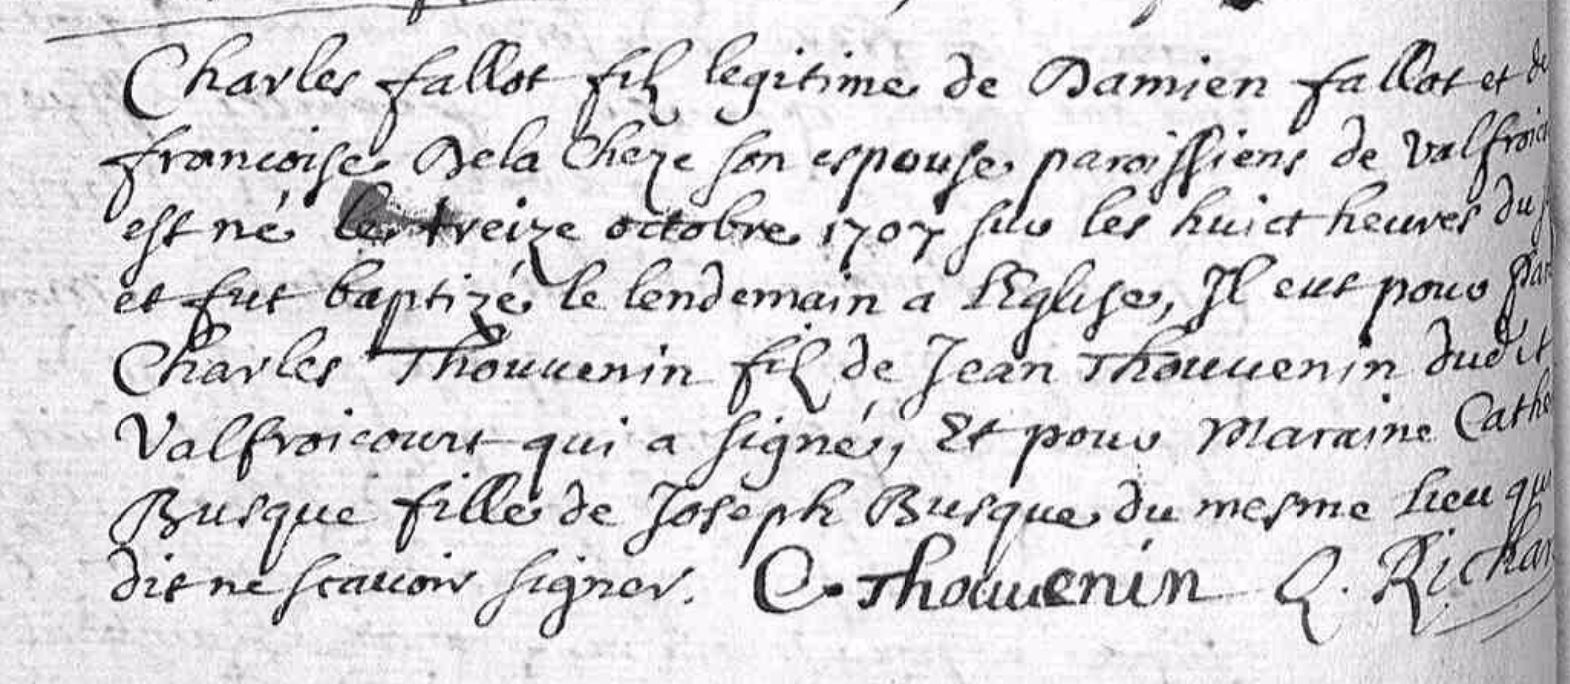 Charles fallot filz legitime de Damien fallot et de
francoise Dela Cheze son espouse paroissiens de valfroic
est né le treize octobre 1707 sur les huict heures du
et fut baptizé le lendemain a l'Eglise, Il eut pour Par
Charles Thouuenin filz de Jean Thouuenin dudit
Valfroicourt qui a signé, Et pour Maraine Cathe
Busque fille de Joseph Busque du mesme lieu qui
dit ne scauoir signer. C. Thouuenin Q. Richar